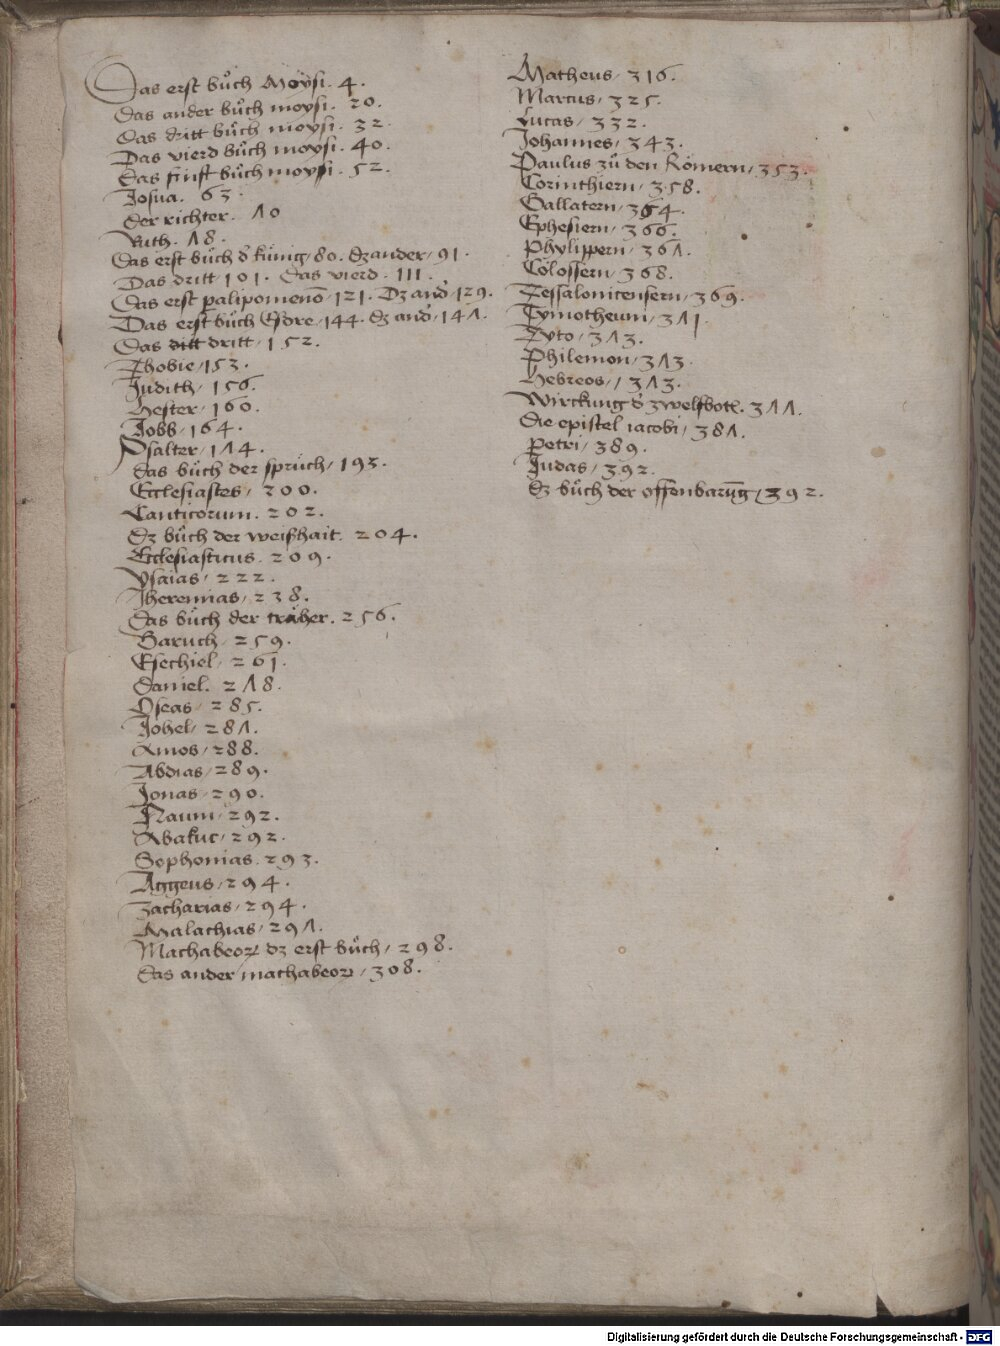 Das erst bůch Moysi. 4.
Das ander bůch moysi. 20.
Das dritt bůch moysi. 32.
Das vierd bůch moysi. 40.
Das finft bůch moysi. 52.
Josua. 63.
Der richter. 70
Ruth. 78.
Das erst bůch d' künig / 80. Dz ander / 91.
Das dritt / 101. Das vierd. 111.
Das erst palipomenō / 121. Dz and' / 129.
Das erst bůch Esdre / 144. Dz and' / 147.
Das dritt / 152.
Thobie / 153.
Judith / 156.
Hester / 160.
Jobb / 164.
Psalter / 174.
Das bůch der sprüch / 193.
Ecclesiastes / 200.
Canticorum. 202.
Dz bůch der weißhait. 204.
Ecclesiasticus. 209.
Ysaias / 222.
Jheremias / 238.
Das bůch der träher. 256.
Baruch / 259.
Esechiel / 261.
Daniel. 278.
Oseas / 285.
Johel / 287.
Amos / 288.
Abdias / 289.
Jonas / 290.
Naum / 292.
Abakuc / 292.
Sophonias. 293.
Aggeus / 294.
Zacharias / 294.
Malachias / 297.
Machabeoꝝ dz erst bůch / 298.
Das ander machabeoꝝ / 308.
Matheus / 316.
Marcus / 325.
Lucas / 332.
Johannes / 343.
Paulus zů den Römern / 353.
Corinthiern / 358.
Gallatern / 364.
Ephesiern / 366.
Phylippern / 367.
Colossern / 368.
Tessalonicensern / 369.
Tymotheum / 371
Tyto / 373.
Philemon / 373.
Hebreos / 373.
Wirckung d' zwelfbotē. 377.
Die epistel iacobi / 387.
Petri / 389.
Judas / 392.
Dz bůch der offenbarūg / 392.
Digitalisierung gefördert durch die Deutsche Forschungsgemeinschaft - DFG